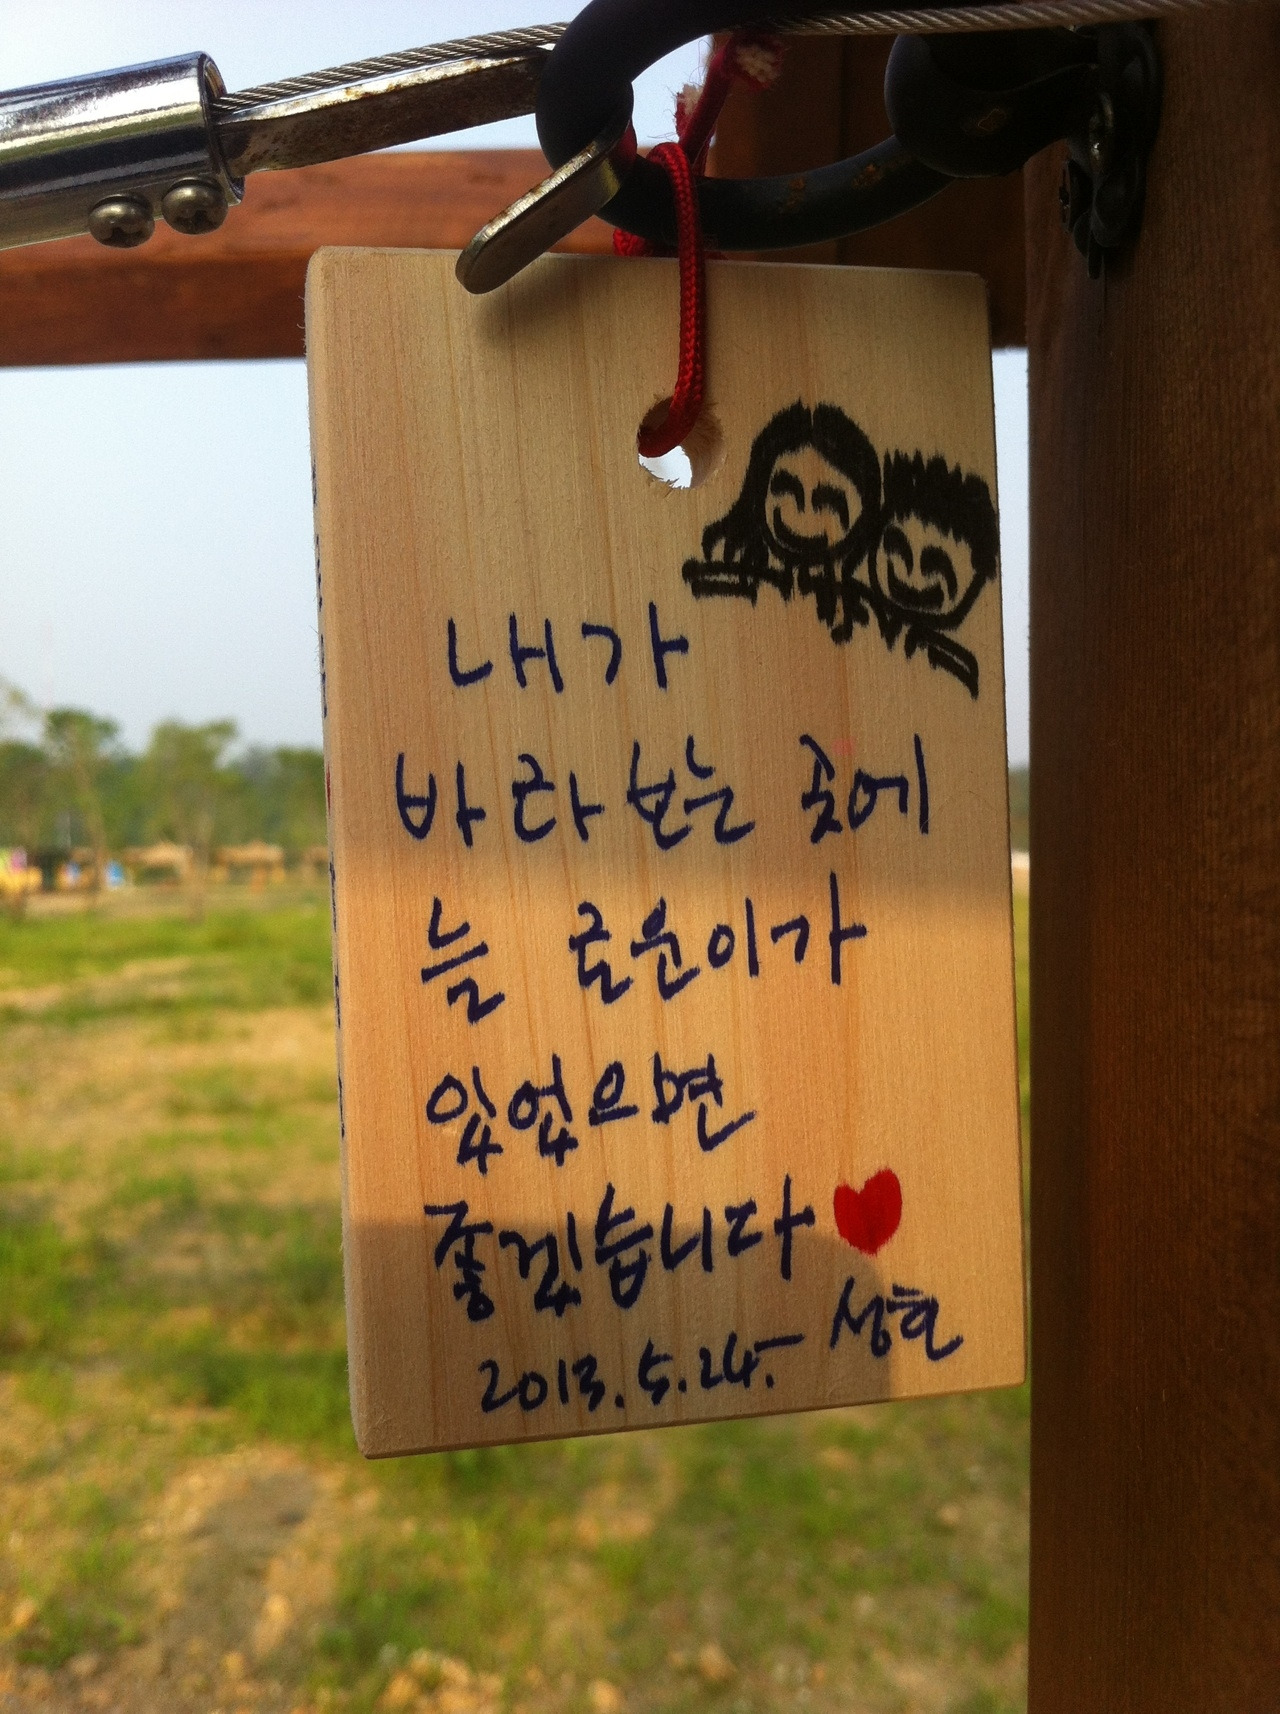 내가
바라보는 곳에
늘 로운이가
있었으면
좋겠습니다
성호
2013. 5. 24.